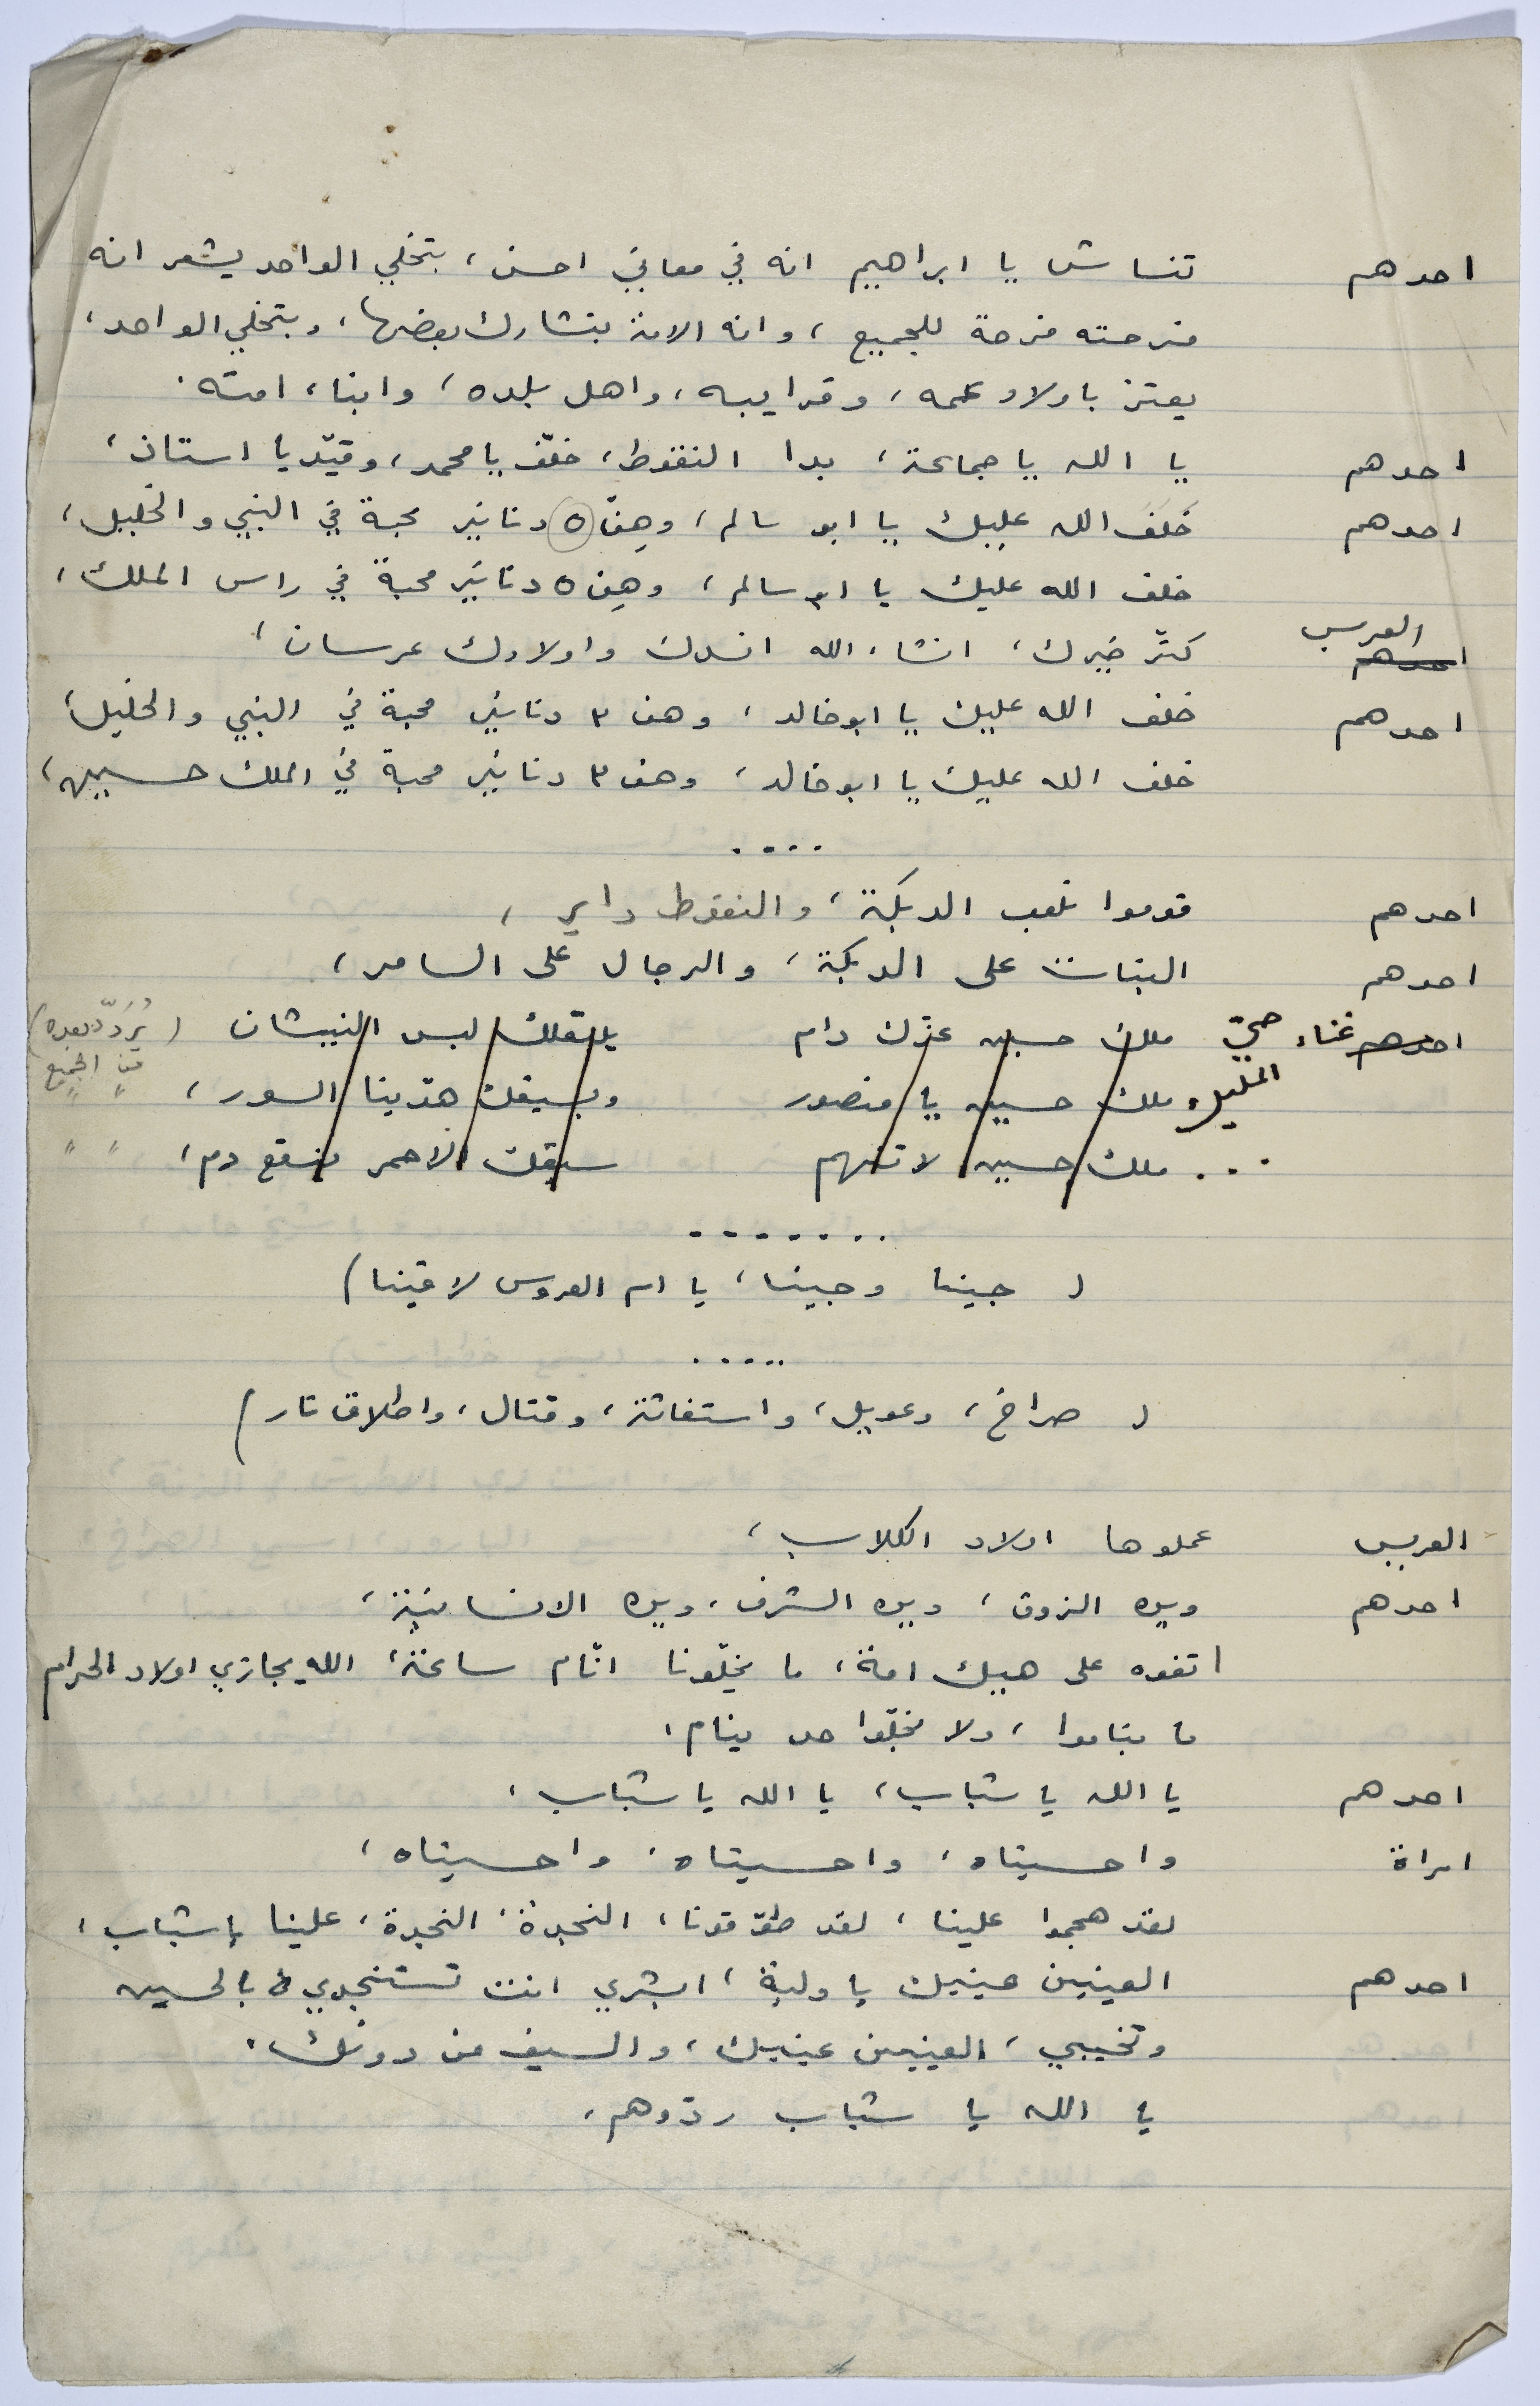 احدهم تنساش يا ابراهيم انه في معاني احسن، بتخلي الواحد يشعر انه
فرحته فرحة للجميع، وانه الامة بتشارك بعضها، وبتخلي الواحد،
يعتز باولاد عمه، وقرايبه، واهل بلده، وابناء امته.
احدهم يا الله يا جماعة، بدا النقوط، خلّف يا محمد، وقيّد يا استاذ،
احدهم خَلَفَ الله عليك يا ابو سالم، وهِنّ ٥ دنانير محبة في النبي والخليل،
خلف الله عليك يا ابو سالم، وهِن ٥ دنانير محبة في راس الملك،
العريس كثّر خيرك، انشاء الله افسدك واولادك عرسان،
احدهم خلف الله عليك يا ابو خالد، وهن ٣ دنانير محبة في النبي والخليل،
خلف الله عليك يا ابو خالد، وهن ٣ دنانير محبة في الملك حسين،
....
احدهم قوموا نلعب الدبكة، والنقوط داير،
احدهم البنات على الدبكة، والرجال على السامر،
احدهم غناء حيّ ملك حسين عزّك دام يلبقلك لبس النيشان (يُرَدّد بعده)
الليل، ملك حسين يا منصور وبسيفك هدّينا السور، من الجميع
... ملك حسين لا تنهم سيفك الاحمر ينقع دم، " "
.......
( جينا وجينا، يا ام العروس لاقينا)
.....
( صراخ، وعويل، واستغاثة، وقتال، واطلاق نار)
العريس عملوها اولاد الكلاب،
احدهم وين الذوق، وين الشرف، وين الانسانية،
اتفوه على هيك امة، ما يخلّونا انّام ساعة، الله يجازي اولاد الحرام
ما بناموا، ولا بخلّوا حد ينام،
احدهم يا الله يا شباب، يا الله يا شباب،
امراة واحسيناه، واحسيناه، واحسيناه،
لقد هجموا علينا، لقد طوّقونا، النجدة، النجدة، علينا يا شباب،
احدهم العينين عينيك يا ولية، ابشري انت تستنجدي بالحسين
وتخيبي، العينين عينيك، والسيف من دونك.
يا الله يا شباب ردّوهم،